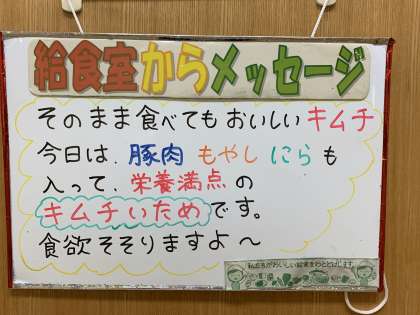 給食室からメッセージ
そのまま食べてもおいしいキムチ
今日は、豚肉 もやし にらも
入って、栄養満点の
キムチいためです。
食欲そそりますよ～